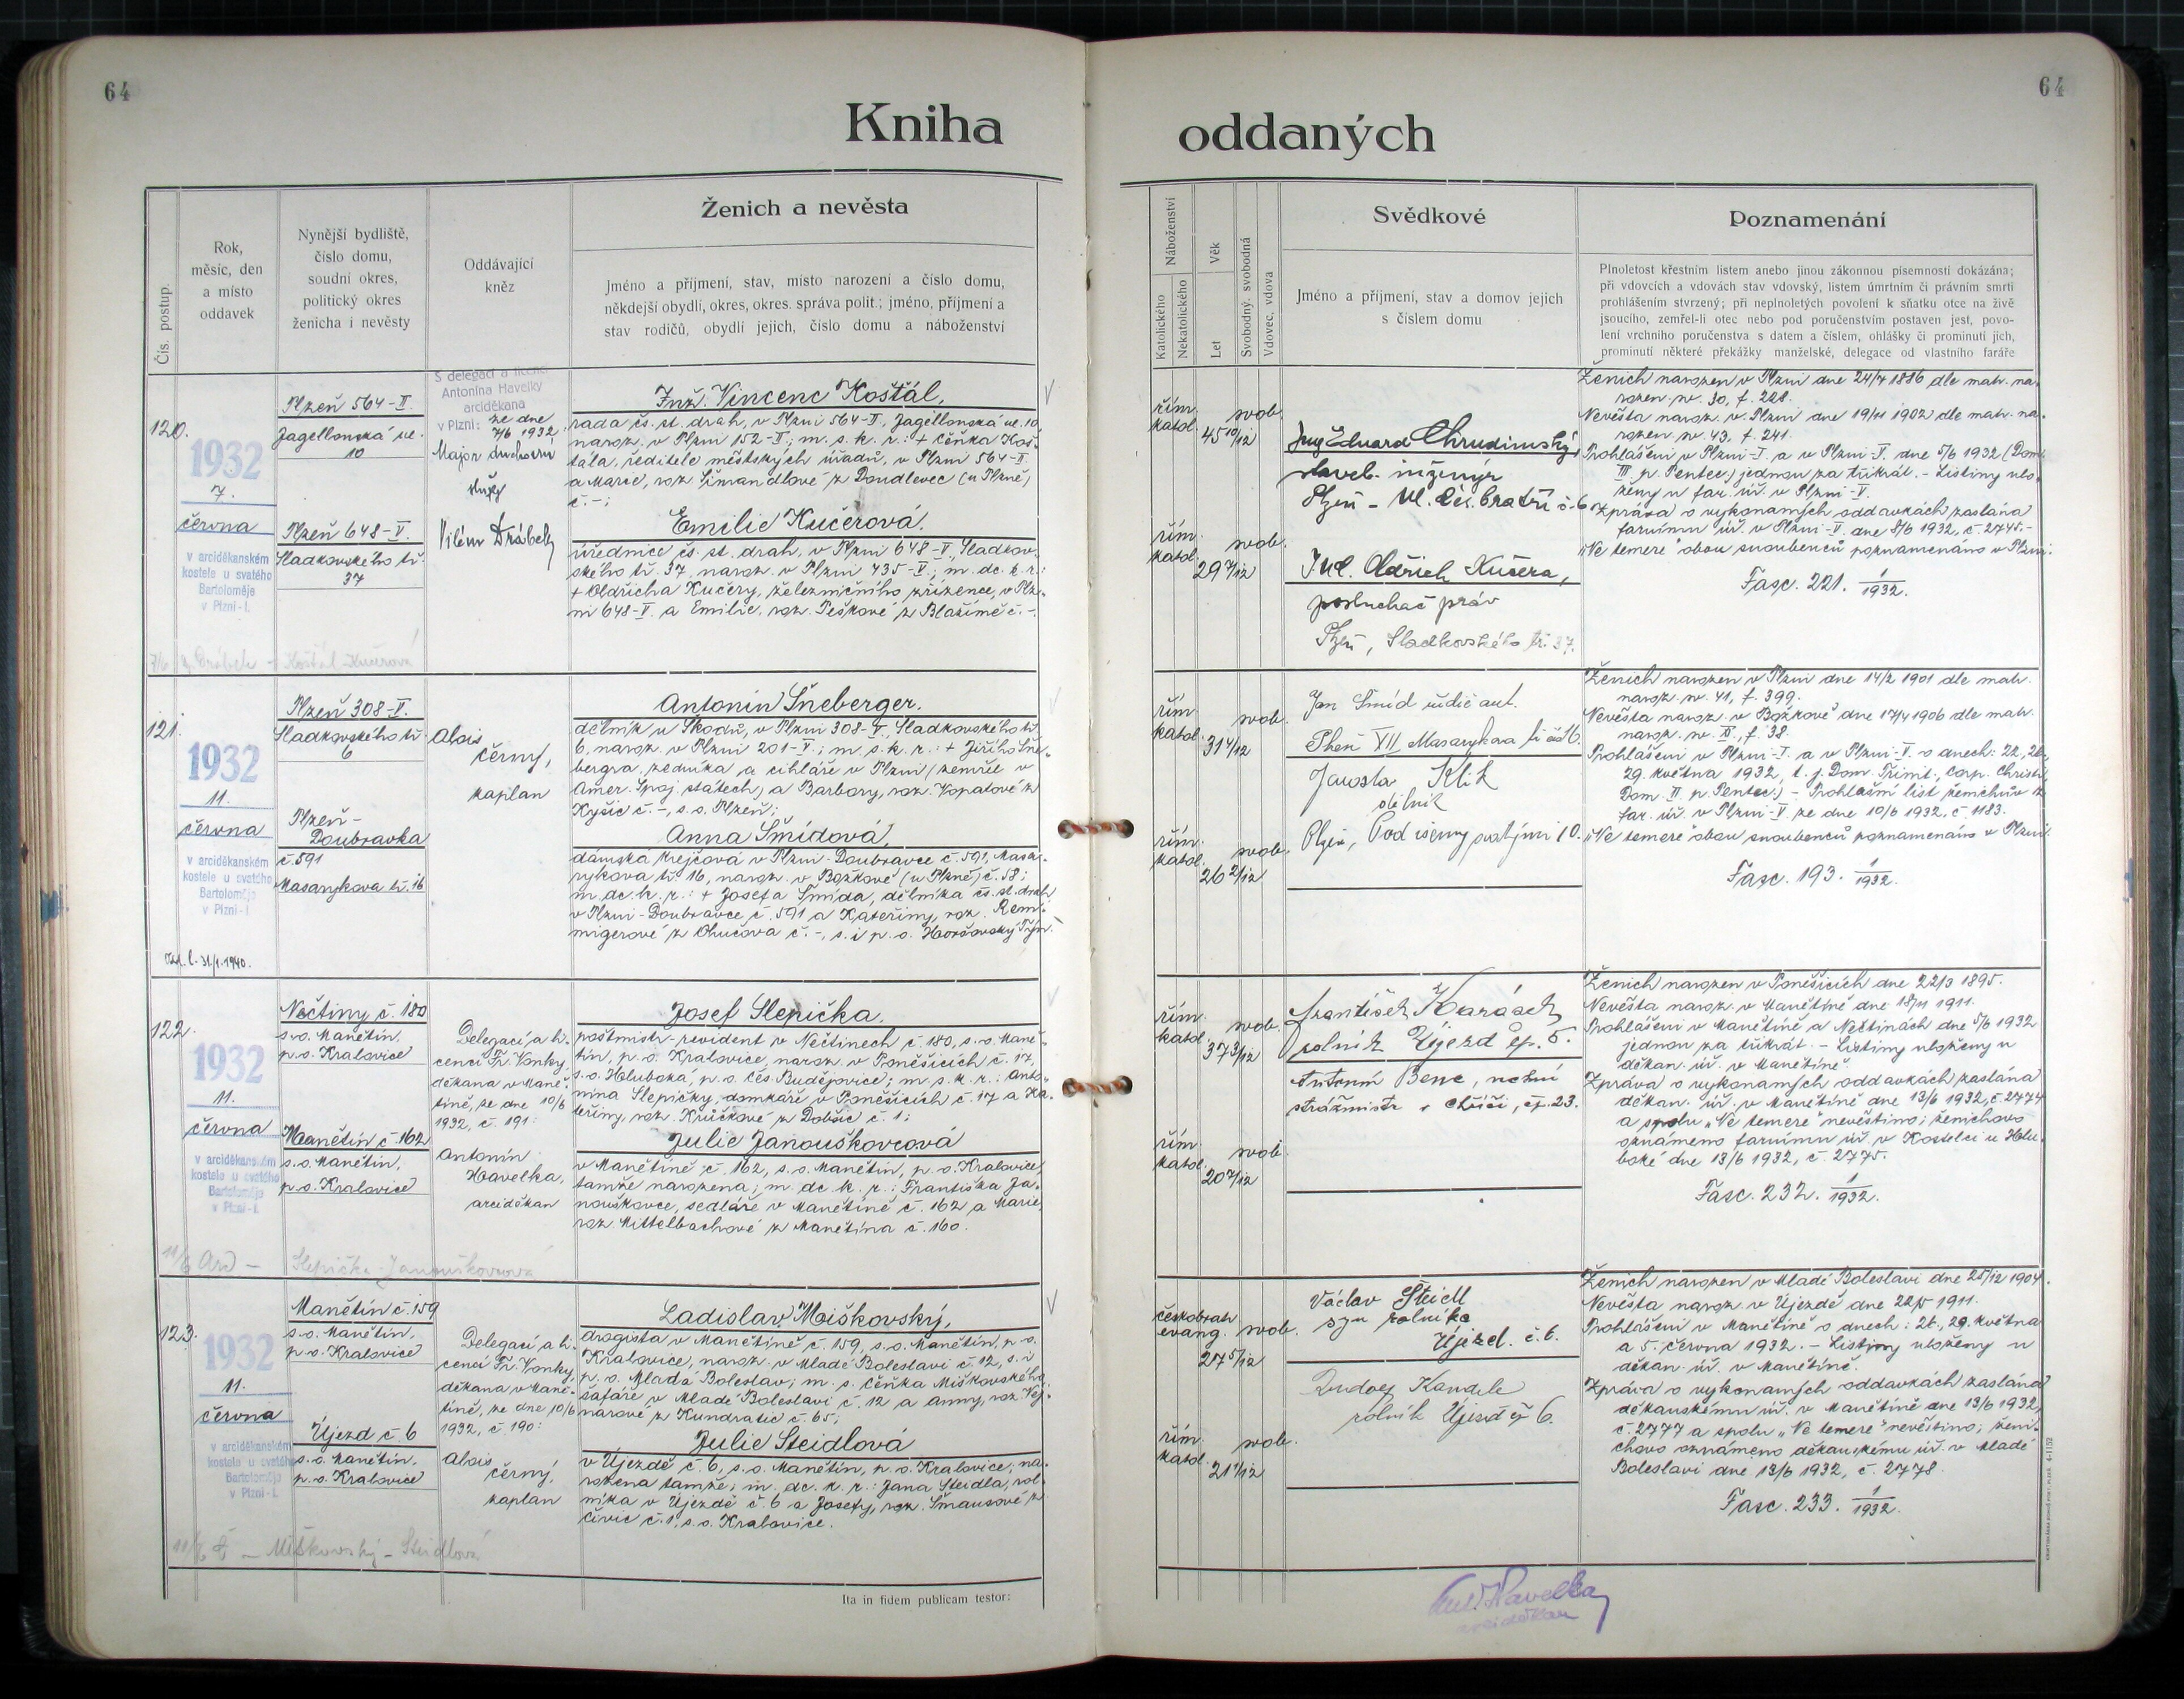 64
64
Kniha
oddaných
Čís. postup.
Rok,
měsíc, den
a místo
oddavek
Nynější bydliště,
číslo domu,
soudní okres,
politický okres
ženicha i nevěsty
Oddávající
kněz
Ženich a nevěsta
Jméno a příjmení, stav, místo narození a číslo domu,
někdejší obydlí, okres, okres. správa polit.; jméno, příjmení a
stav rodičů, obydlí jejich, číslo domu a náboženství
Náboženství
Katolického
Nekatolického
Věk
Let
Svobodný, svobodná
Vdovec, vdova
Svědkové
Jméno a příjmení, stav a domov jejich
s číslem domu
Poznamenání
Plnoletost křestním listem anebo jinou zákonnou písemností dokázána;
při vdovcích a vdovách stav vdovský, listem úmrtním či právním smrti
prohlášením stvrzený; při neplnoletých povolení k sňatku otce na živě
jsoucího, zemřel-li otec nebo pod poručenstvím postaven jest, povo-
lení vrchního poručenstva s datem a číslem, ohlášky či prominutí jich,
prominutí některé překážky manželské, delegace od vlastního faráře
120.
1932
7.
června
v arciděkanském
kostele u svatého
Bartoloměje
v Plzni-I.
Plzeň 564-II.
Jagellonská ul.
10
Plzeň 648-V.
Sladkovského tř.
37
S delegací a licencí
Antonína Havelky
arciděkana
v Plzni: ze dne
7/6 1932.
Major duchovní
služby
Vilém Drábek
Inž. Vincenc Košťál,
rada čs. st. drah, v Plzni 564-II, Jagellonská ul. 10,
naroz. v Plzni 152-II; m. s. k. r.: + Čeňka Koš-
ťála, ředitele městských úřadů, v Plzni 564-II
a Marie, roz. Šimandlové z Doudlevec (u Plzně)
č. -;
Emilie Kučerová.
úřednice čs. st. drah, v Plzni 648-V, Sladkov-
ského tř. 37, naroz. v Plzni 435-V.; m. dc. k. r.:
+ Oldřicha Kučery, železničního zřízence, v Plz-
ni 648-V. a Emilie, roz. Peškové z Blažimě č. -.
Košťál-Kučerová
řím.
katol.
45 10/12
svob.
řím.
katol.
29 7/12
svob.
Ing Eduard Chrudimský,
staveb. inženýr
Plzeň - Ul. čes. bratří č. 6
JUC. Oldřich Kučera,
posluchač práv
Plzeň, Sladkovského tř. 37.
Ženich narozen v Plzni dne 24/7 1886 dle matr. na-
rozen. sv. 30, f. 228.
Nevěsta naroz. v Plzni dne 19/11 1902 dle matr. na-
rozen. sv. 43, f. 241.
Prohlášeni v Plzni-I. a v Plzni-V. dne 5/6 1932 (Dom.
III p. Pentec.) jednou za třikrát. - Listiny ulo-
ženy u far. úř. v Plzni-V.
Zpráva o vykonaných oddavkách zaslána
farnímu úř. v Plzni-V. dne 8/6 1932, č. 2745.-
„Ne temere" obou snoubenců poznamenáno v Plzni.
Fasc. 221. 1/1932.
121.
1932
11.
června
v arciděkanském
kostele u svatého
Bartoloměje
v Plzni-I.
Plzeň 308-V.
Sladkovského tř.
6
Plzeň-
Doubravka
č. 591
Masarykova tř. 16
Alois
Černý,
kaplan
Antonín Šneberger.
dělník u Škodů, v Plzni 308-V, Sladkovského tř.
6, naroz. v Plzni 201-V.; m. s. k. r.: + Jiřího Šne-
bergra, zedníka a cihláře v Plzni (zemřel v
Amer. Spoj. státech) a Barbory, roz. Kopatové z
Kyšic č. -, s. o. Plzeň;
Anna Šmídová,
dámská krejčová v Plzni-Doubravce č. 591, Masa-
rykova tř. 16, naroz. v Božkově (u Plzně) č. 58;
m. dc. k. r.: + Josefa Šmída, dělníka čs. st. drah
v Plzni-Doubravce č. 591 a Kateřiny, roz. Rem-
migerové z Ohučova č. -, s. i p. o. Horšovský Týn.
31/1.1940.
řím.
katol.
31 4/12
svob.
řím.
katol.
26 2/12
svob.
Jan Šmíd řidič aut.
Plzeň VII Masarykova tř. čís 16.
Jarosla Klik
dělník
Plzeň, Pod všemy svatými 10.
Ženich narozen v Plzni dne 14/2 1901 dle matr.
naroz. sv. 41, f. 399.
Nevěsta naroz. v Božkově dne 17/4 1906 dle matr.
naroz. sv. II, f. 38.
Prohlášeni v Plzni-I. a v Plzni-V. o dnech: 22., 26.,
29. května 1932, t. j. Dom. Trinit., Corp. Christi,
Dom. II p. Pentec.) - Prohlašní list ženichův z
far. úř. v Plzni-V. ze dne 10/6 1932, č. 1183.
„Ne temere" obou snoubenců poznamenáno v Plzni.
Fasc. 193. 1/1932.
122.
1932
11.
června
v arciděkanském
kostele u svatého
Bartoloměje
v Plzni-I.
Nečtiny č. 180
s. o. Manětín,
p. o. Kralovice
Manětín č. 162
s. o. Manětín,
p. o. Kralovice
Delegací a li-
cencí Fr. Vonky,
děkana v Mané-
tíně, ze dne 10/6
1932, č. 191:
Antonín
Havelka,
arciděkan
Josef Slepička.
poštmistr-revident v Nečtinech č. 180, s. o. Mané-
tín, p. o. Kralovice, naroz. v Poněšicích č. 17,
s. o. Hluboká, p. o. Čes. Budějovice; m. s. k. r.: Anto-
nína Slepičky, domkáře v Poněšicích č. 17 a Ka-
teřiny, roz. Kručkové z Dobšic č. 1;
Julie Janouškovcová
v Manětíně č. 162, s. o. Manětín, p. o. Kralovice,
tamže narozena; m. dc. k. r.: Františka Ja-
nouškovce, sedláře v Manětíně č. 162 a Marie,
roz. Mittelbachové z Manětína č. 160.
11/6 Arcd - Slepička-Janouškovcová
řím.
katol.
37 3/12
svob.
řím.
katol.
20 7/12
svob.
František Karásek
rolník Újezd čp. 5.
Antonín Benc,
strážmistr v Chříči, čp. 23.
Ženich narozen v Poněšicích dne 22/3 1895.
Nevěsta naroz. v Manětíně dne 18/11 1911.
Prohlášeni v Manětíně a Nečtinách dne 5/6 1932
jednou za třikrát. - Listiny uloženy u
děkan. úř. v Manětíně.
Zpráva o vykonaných oddavkách zaslána
děkan. úř. v Manětíně dne 13/6 1932, č. 2774
a spolu „Ne temere" nevěstino; ženichovo
oznámeno farnímu úř. v Kostelci u Hlu-
boké dne 13/6 1932, č. 2775.
Fasc. 232. 1/1932.
123.
1932
11.
června
v arciděkanském
kostele u svatého
Bartoloměje
v Plzni-I.
Manětín č. 159
s. o. Manětín,
p. o. Kralovice
Újezd č. 6
s. o. Manětín,
p. o. Kralovice
Delegací a li-
cencí Fr. Vonky,
děkana v Mané-
tíně, ze dne 10/6
1932, č. 190:
Alois
Černý,
kaplan
Ladislav Miškovský,
drogista v Manětíně č. 159, s. o. Manětín, p. o.
Kralovice, naroz. v Mladé Boleslavi č. 12, s. i
p. o. Mladá Boleslav; m. s. Čeňka Miškovského,
šafáře v Mladé Boleslavi č. 12 a Anny, roz. Vej-
narové z Kundratic č. 65;
Julie Steidlová
v Újezdě č. 6, s. o. Manětín, p. o. Kralovice, na-
rozena tamže; m. dc. k. r.: Jana Steidla, rol-
níka v Újezdě č. 6 a Josefy, roz. Šmausové z
Čivic č. 1, s. o. Kralovice.
11/6 Č - Miškovský - Steidlová
českobratr.
evang.
27 5/12
svob.
řím.
katol.
21 1/12
svob.
Václav Steidl
syn rolníka
Újezd. č. 6.
Rudolf Kandle
rolník Újezd čp 6.
Ženich narozen v Mladé Boleslavi dne 25/12 1904.
Nevěsta naroz. v Újezdě dne 22/5 1911.
Prohlášeni v Manětíně o dnech: 26., 29. května
a 5. června 1932. - Listiny uloženy u
děkan. úř. v Manětíně.
Zpráva o vykonaných oddavkách zaslána
děkanskému úř. v Manětíně dne 13/6 1932,
č. 2777 a spolu „Ne temere" nevěstino; ženi-
chovo oznámeno děkanskému úř. v Mladé
Boleslavi dne 13/6 1932, č. 2778.
Fasc. 233. 1/1932.
Ita in fidem publicam testor:
Ant. Havelka
arciděkan